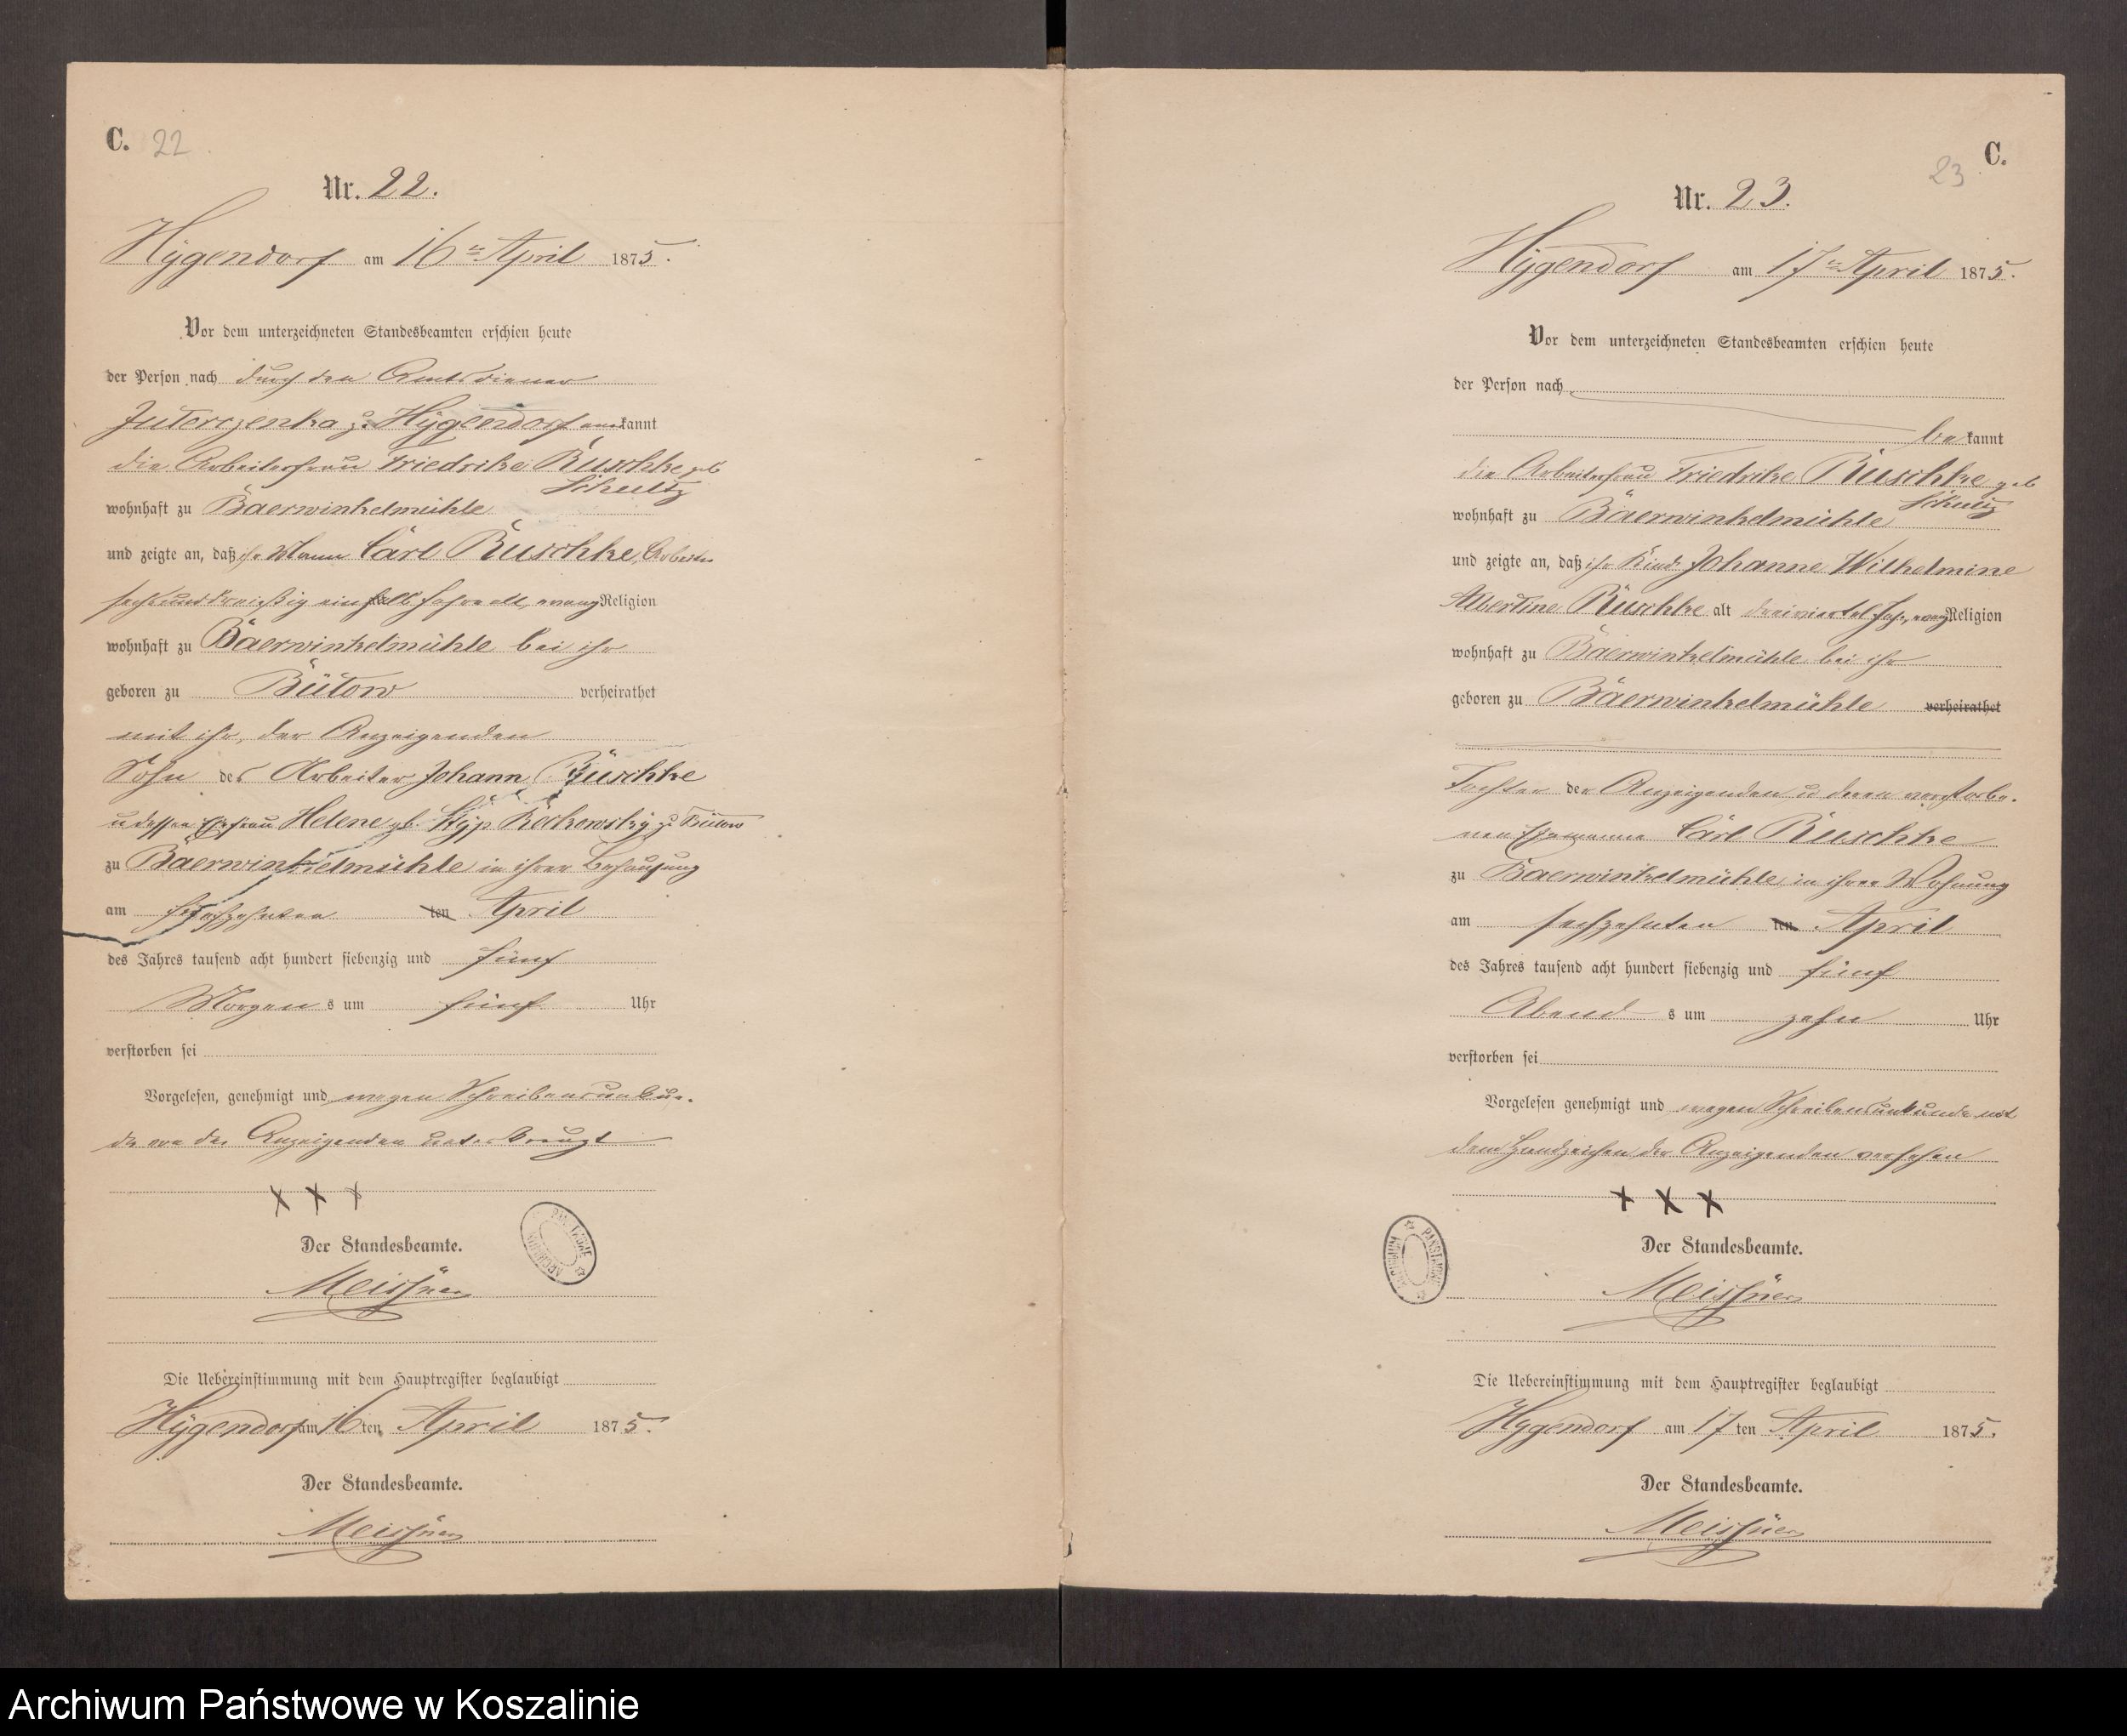 C. 22
Nr. 22.
Hygendorf am 16ten April 1875.
Vor dem unterzeichneten Standesbeamten erschien heute
der Person nach durch den Amtsdiener
Juterzenka zu Hygendorf anerkannt
die Arbeiterfrau Friedrike Buschke geb
Schultz
wohnhaft zu Baerwinkelmühle
und zeigte an, daß ihr Mann Carl Buschke, Arbeiter
sechsunddreißig ein halb Jahre alt, evang Religion
wohnhaft zu Baerwinkelmühle bei ihr
geboren zu Bütow verheirathet
mit ihr, der Anzeigenden
Sohn des Arbeiter Johann Buschke
u dessen Ehefrau Helene geb. Reckowsky zu Bütow
zu Baerwinkelmühle in ihrer Behausung
am sechszehnten ten April
des Jahres tausend acht hundert siebenzig und fünf
Morgen s um fünf Uhr
verstorben sei
Vorgelesen, genehmigt und wegen Schreibensunkun-
de von der Anzeigenden unterkreuzt
× × ×
Der Standesbeamte.
Meissner
Die Uebereinstimmung mit dem Hauptregister beglaubigt
Hygendorf am 16 ten April 1875.
Der Standesbeamte.
Meissner
C.
23
Nr. 23.
Hygendorf am 17ten April 1875.
Vor dem unterzeichneten Standesbeamten erschien heute
der Person nach
bekannt
die Arbeiterfrau Friedrike Buschke geb
Schultz
wohnhaft zu Baerwinkelmühle
und zeigte an, daß ihr Kind Johanne Wilhelmine
Albertine Buschke alt dreiviertel Jahr, evang Religion
wohnhaft zu Baerwinkelmühle bei ihr
geboren zu Baerwinkelmühle verheirathet
Tochter der Anzeigenden u deren verstorbe-
nen Ehemanne Carl Buschke
zu Baerwinkelmühle in ihrer Wohnung
am sechzehnten ten April
des Jahres tausend acht hundert siebenzig und fünf
Abend s um zehn Uhr
verstorben sei
Vorgelesen genehmigt und wegen Schreibensunkunde mit
dem Handzeichen der Anzeigenden versehen
× × ×
Der Standesbeamte.
Meissner
Die Uebereinstimmung mit dem Hauptregister beglaubigt
Hygendorf am 17 ten April 1875.
Der Standesbeamte.
Meissner
Archiwum Państwowe w Koszalinie